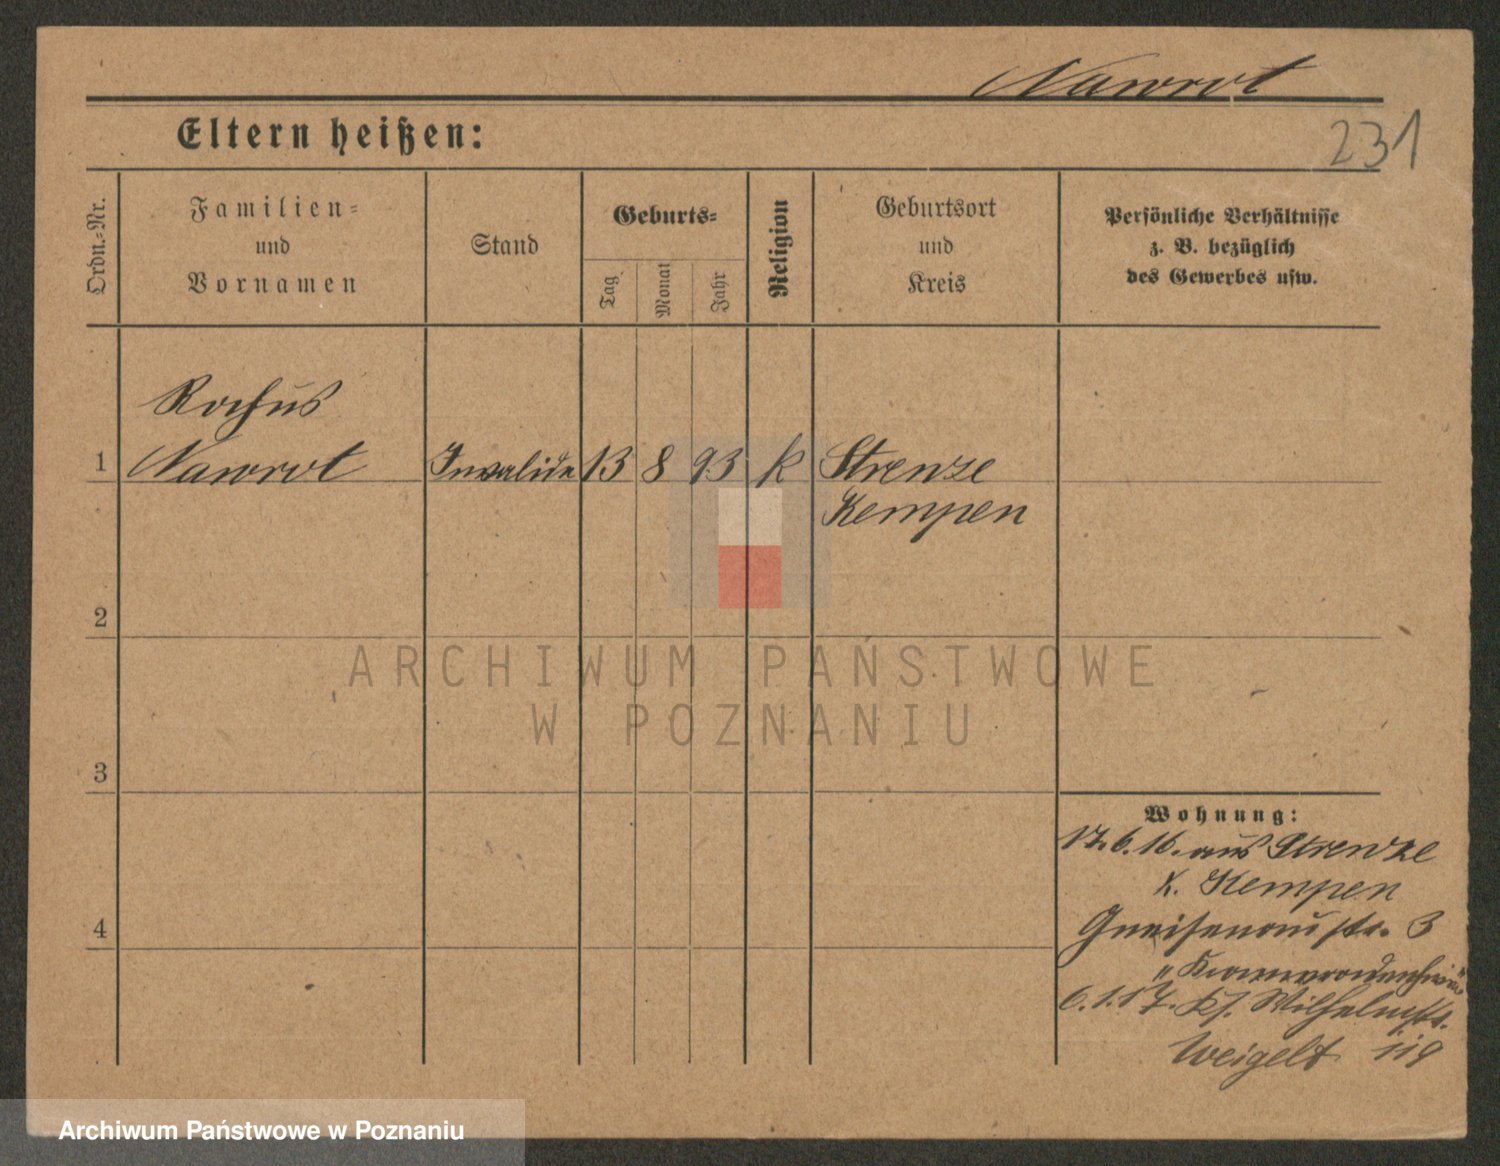 Nawrot
Eltern heißen:
231
Ordn.-Nr.
Familien-
und
Vornamen
Stand
Geburts-
Tag
Monat
Jahr
Religion
Geburtsort
und
Kreis
Persönliche Verhältnisse
z. B. bezüglich
des Gewerbes usw.
Rochus
1 Nawrot Invalide 13 8 93 k Strenze
Kempen
2
ARCHIWUM PAŃSTWOWE
W POZNANIU
3
Wohnung:
17.6.16. aus Strenze
K. Kempen
4
Gneisenaustr. 3
6.1.17. Wilhelmstr.
Weigelt
Archiwum Państwowe w Poznaniu